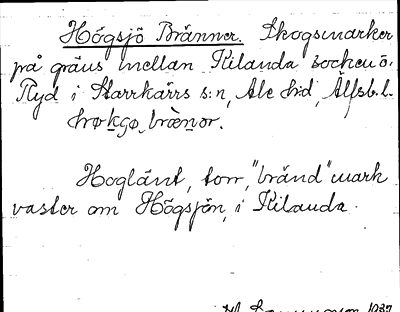 Högsjö Bränner. Skogsmarker
på gräns mellan Kilanda socken o.
Ryd i Starrkärrs s:n, Ale hd, Älfsb. l.
Hoglänt, torr, "bränd" mark
väster om Högsjön, i Kilanda.
1937